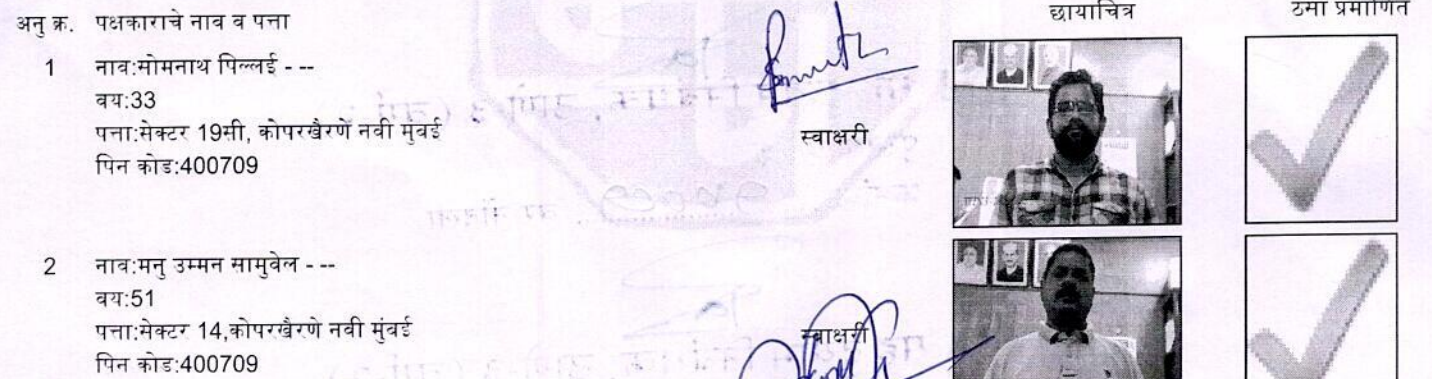 अनु क्र. पक्षकाराचे नाव व पत्ता छायाचित्र ठसा प्रमाणित
1 नाव:सोमनाथ पिल्लई - --
वय:33
पत्ता:सेक्टर 19सी, कोपरखैरणे नवी मुंबई
पिन कोड:400709
स्वाक्षरी
2 नाव:मनु उम्मन सामुवेल - --
वय:51
पत्ता:सेक्टर 14,कोपरखैरणे नवी मुंबई
पिन कोड:400709
स्वाक्षरी